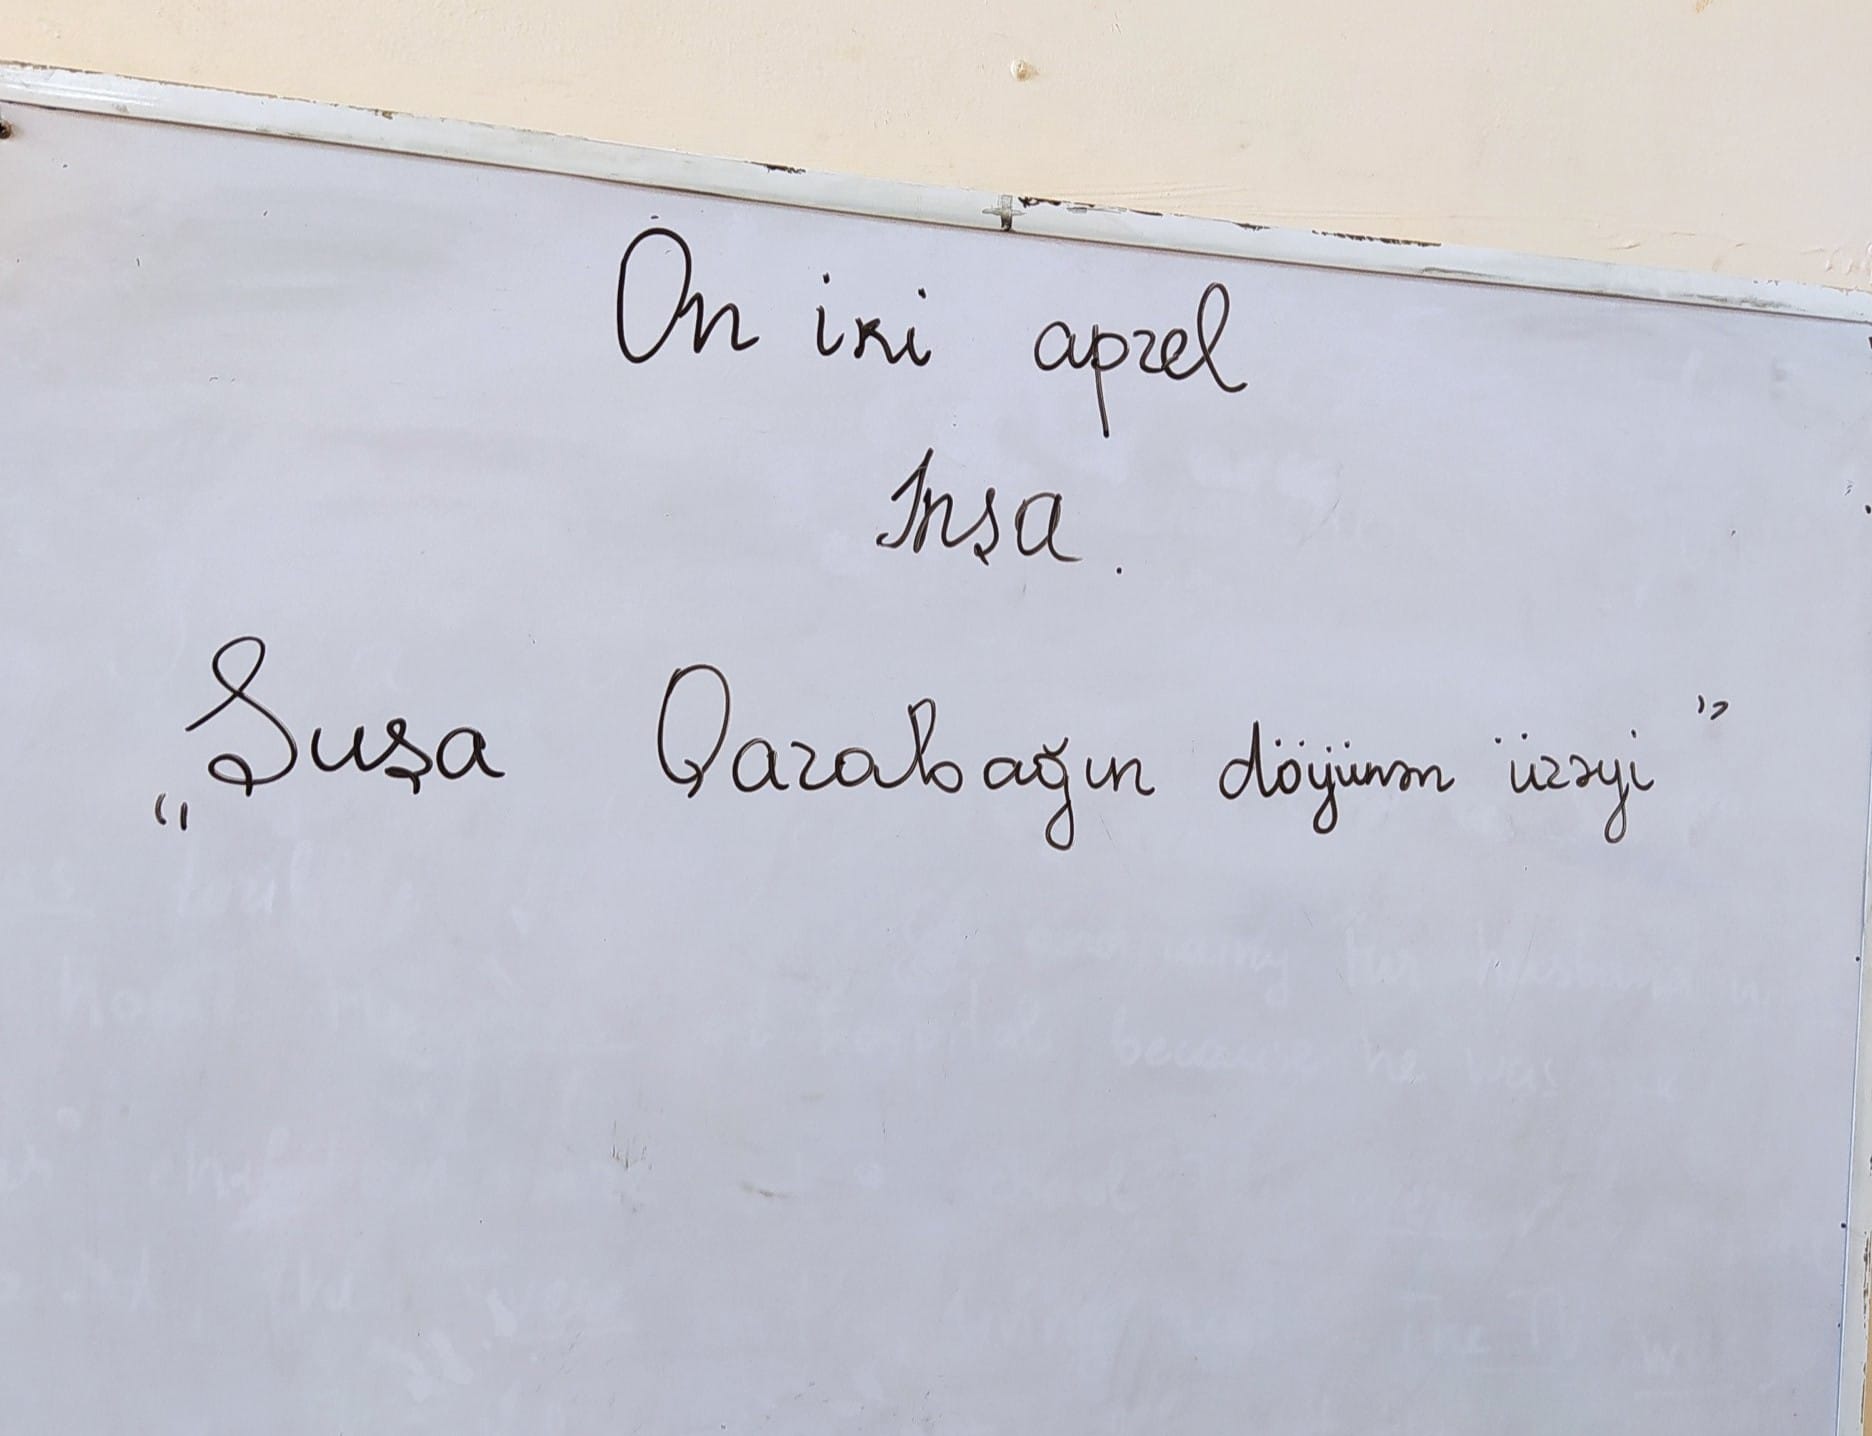 On iki aprel
Inşa.
„Şuşa Qarabağın döyünən ürəyi”